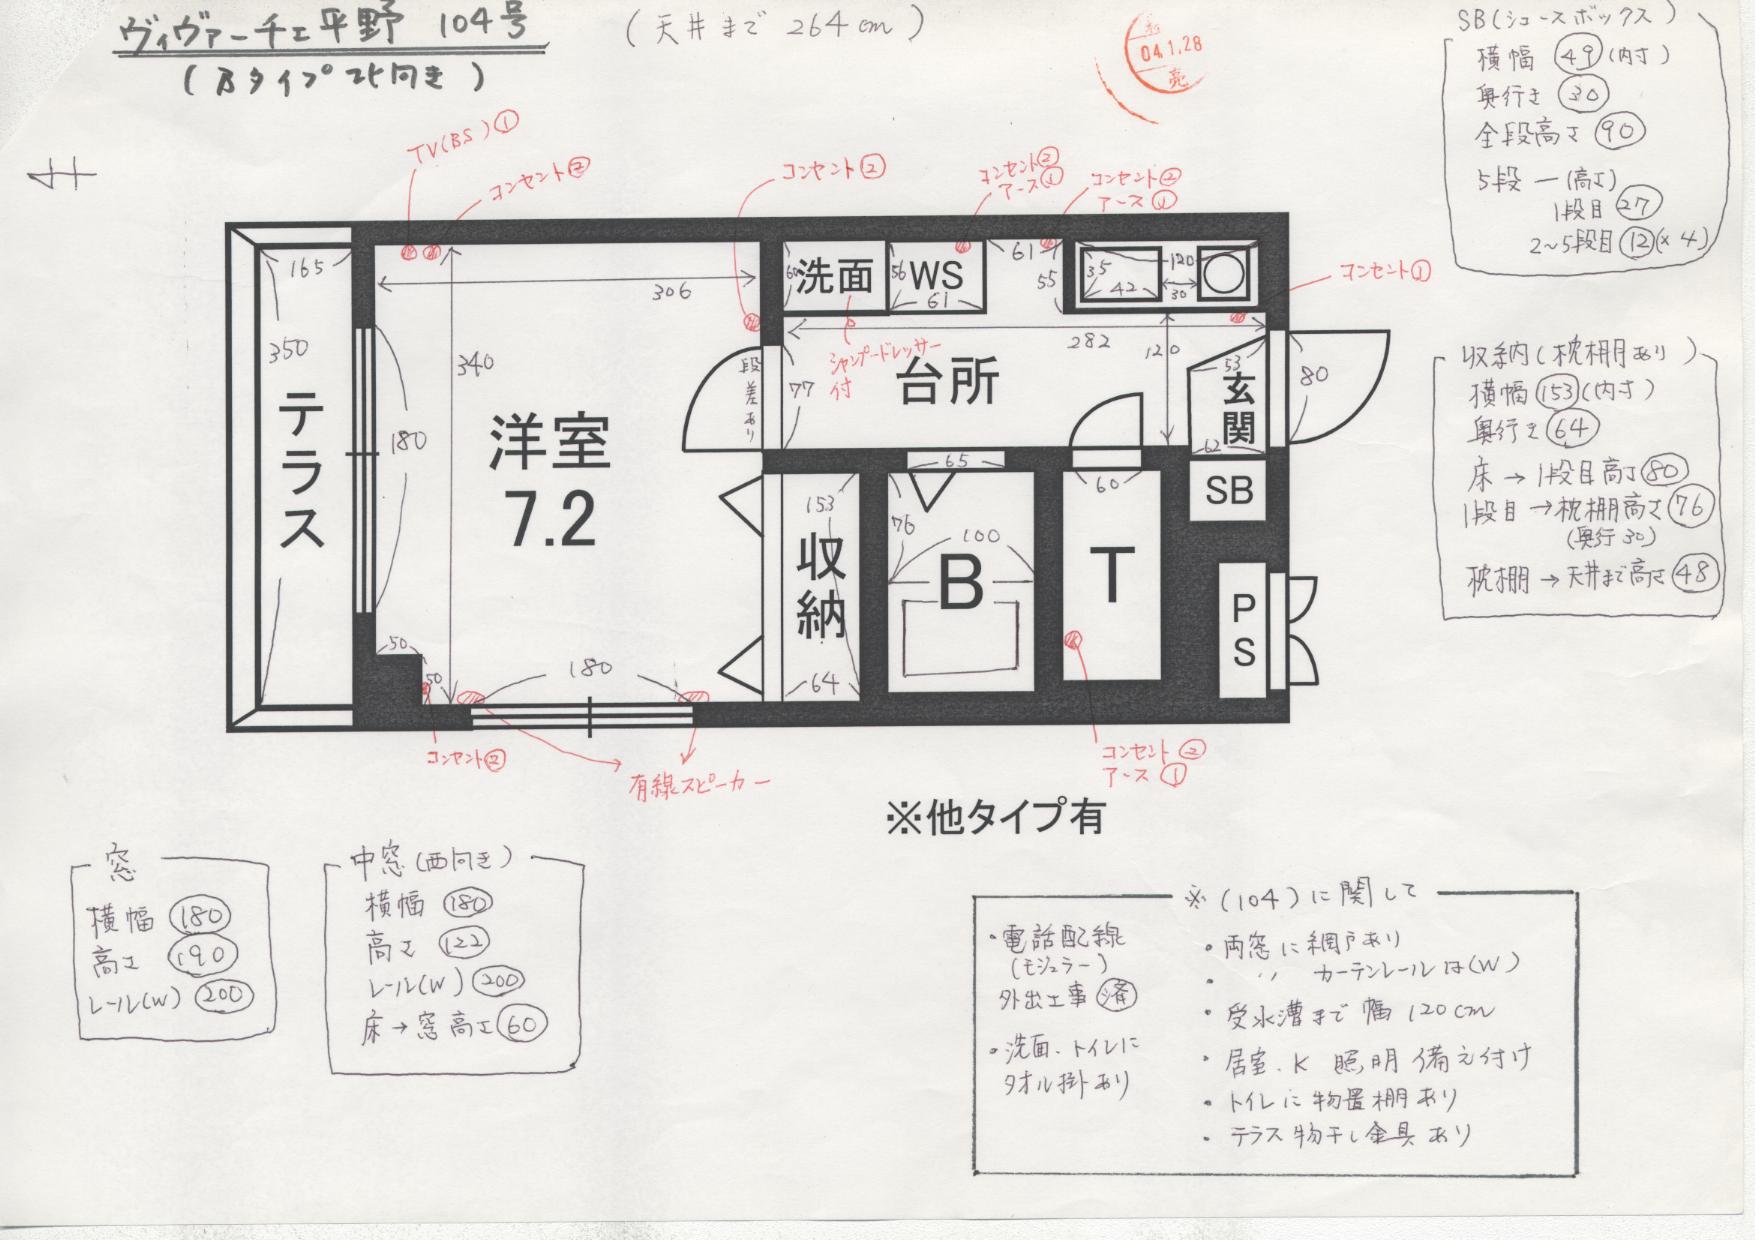 ヴィヴァーチェ平野 104号
(Bタイプ 北向き)
(天井まで 264cm)
04.1.28
亮
SB(シューズボックス)
横幅 49 (内寸)
奥行き 30
全段高さ 90
5段 ー(高さ)
1段目 27
2〜5段目 12 (×4)
TV(BS) 1
コンセント 2
コンセント 2
コンセント 2
アース 1
コンセント 2
アース 1
コンセント 1
165
350
テラス
306
340
180
洋室
7.2
50
50
180
60
洗面
シャンプードレッサー
付
56
WS
61
61
55
35
42
120
30
282
120
台所
77
段差あり
53
玄関
62
80
SB
153
収納
64
65
76
100
B
60
T
PS
コンセント 2
有線スピーカー
コンセント 2
アース 1
※他タイプ有
収納(枕棚あり)
横幅 153 (内寸)
奥行き 64
床→1段目高さ 80
1段目→枕棚高さ 76
(奥行30)
枕棚→天井まで高さ 48
窓
横幅 180
高さ 190
レール(W) 200
中窓(西向き)
横幅 180
高さ 122
レール(W) 200
床→窓高さ 60
※(104)に関して
・電話配線
(モジュラー)
外出工事 済
・洗面、トイレに
タオル掛あり
・両窓に網戸あり
・ 〃 カーテンレールは(W)
・受水漕まで幅120cm
・居室、K 照明備え付け
・トイレに物置棚あり
・テラス物干し金具あり